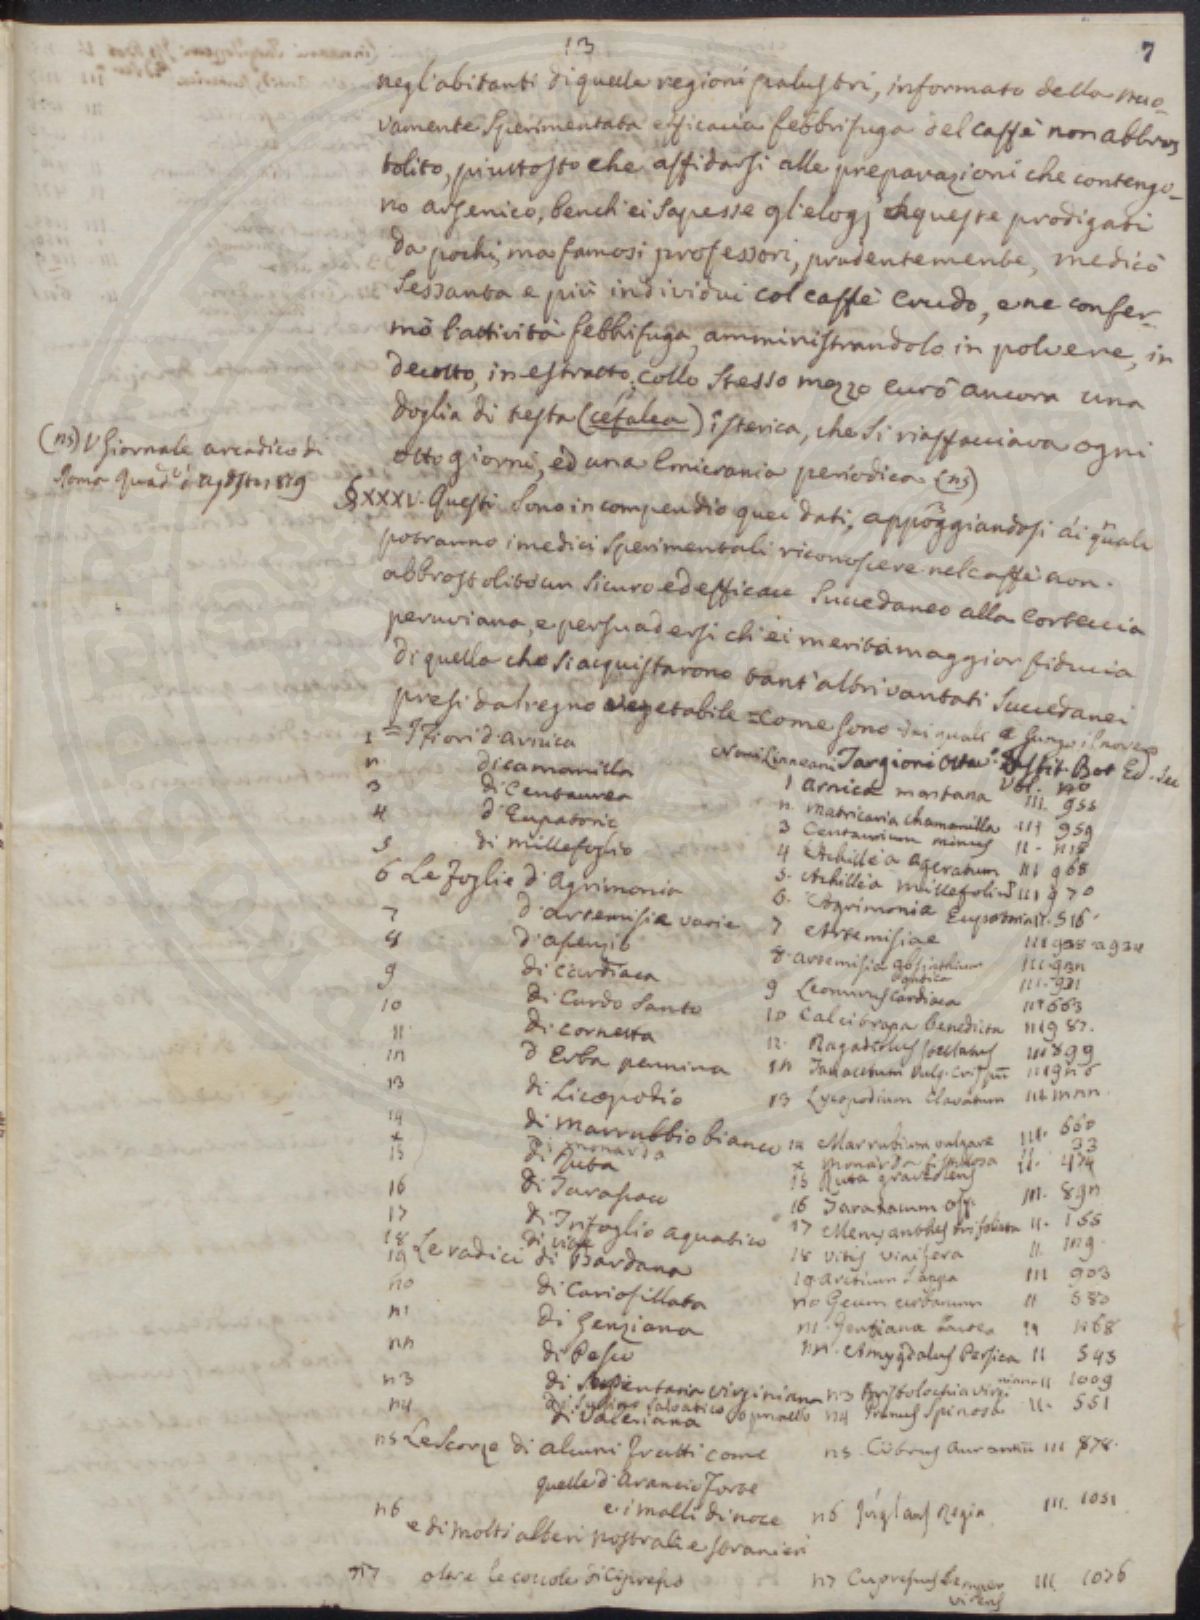 13
7
negl'abitanti di quelle regioni palustri, informato della nuo-
vamente sperimentata efficacia febbrifuga del caffè non abbros
tolito, piuttosto che affidarsi alle preparazioni che contengo-
no arsenico, bench'ei sapesse gl'elogj a queste prodigati
da pochi, ma famosi professori, prudentemente, medicò
sessanta e più individui col caffè crudo, e ne confer-
mò l'attività febbrifuga, amministrandolo in polvere, in
decotto, in estratto, collo stesso mezzo curò ancora una
doglia di testa (cefalea) isterica, che si riaffacciava ogni
otto giorni, ed una emicrania periodica (n5)
(n5) V Giornale arcadico di
Roma Quad° d'agosto 1819
§XXXV. Questi sono in compendio quei dati, appoggiandosi ai quali
potranno i medici sperimentali riconoscere nel caffè non
abbrostolito un sicuro ed efficace succedaneo alla corteccia
peruviana, e persuadersi ch'ei merita maggior fiducia
di quella che si acquistarono tant'altri vantati succedanei
presi dal regno vegetabile = come sono dai quali
1 = I Fiori d'arnica
n di camamilla
3 di Centaurea
4 d'Eupatorio
5 di millefoglio
6 Le foglie d'Agrimonia
7 d'artemisia varie
8 d'assenzio
9 di cardiaca
10 di Cardo Santo
11 di cornetta
1n d'Erba pennina
13 di Licopodio
14 di marrubbio bianco
x di monarda
15 di Ruta
16 di Tarassaco
17 di Trifoglio aquatico
18 di vite
19 Le radici di Bardana
n0 di Cariofillata
n1 di Genziana
nn di Pesco
n3 di Serpentaria virginiana
di Susino salvatico o prunello
n4 di Valeriana
n5 Le Scorze di alcuni frutti come
quelle d'Arancio Forte
n6 e i malli di noce
e di molti alberi nostrali e stranieri
n7 oltre le coccole di Cipresso
Nomi Linneani Targioni Istit. Bot Ed.
1 Arnica montana III. 955
n. Matricaria chamomilla III 959
3 Centaurium minus II. n18
4 Achillea Ageratum III 968
5. Achillea millefolium III 970
6. Agrimonia Eupatoria II. 516.
7 Artemisiae
8. artemisia absinthium
pontica
9 Leonurus Cardiaca III 663
10 Calcitrapa benedicta III 987.
III 899
1n Tanacetum vulg. crispum III 9n6
13 Lycopodium Clavatum III
14 Marrubium vulgare III. 660
x monarda fistulosa II. 33
15 Ruta graveolens II. 474
16 Taraxacum off. III. 89n
17 Menyanthes trifoliata II. 155
18 vitis vinifera II. n19.
19 arctium Lappa III 903
n0 Geum urbanum II 583
n1. Gentiana Lutea II n68
nn. Amygdalus Persica II 543
n3 Aristolochia virginiana II 1009
n4 Prunus Spinosa II. 551
n5. Citrus aurantium III 878.
n6 Juglans Regia III. 1051
n7 Cupressus semper
virens III. 1076